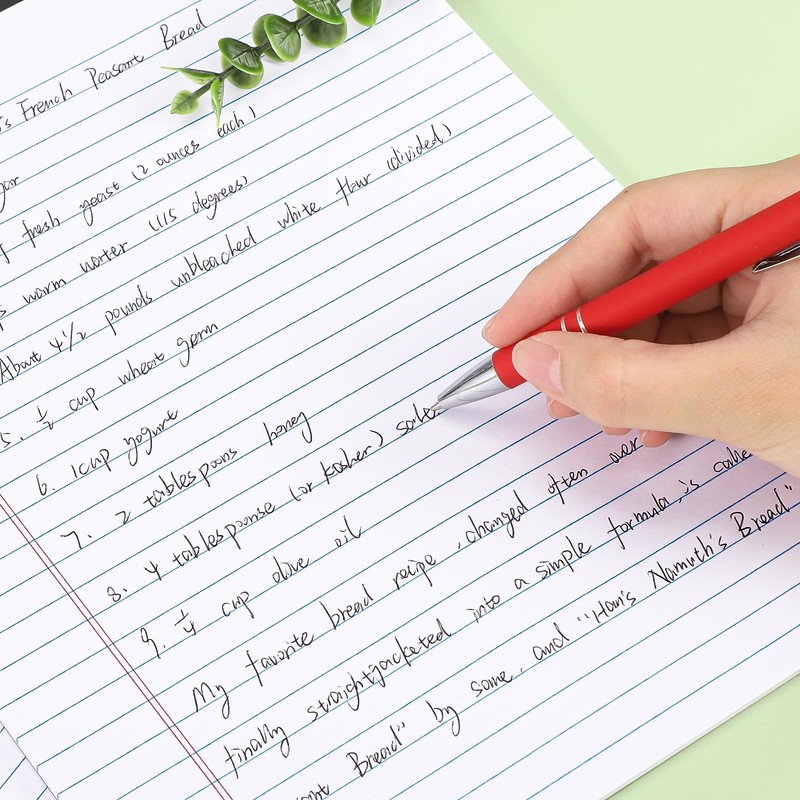 's French Peasant Bread
fresh yeast (2 ounces each)
warm water (115 degrees)
About 4 1/2 pounds unbleached white flour (divided)
5. 1/2 cup wheat germ
6. 1cup yogurt
7. 2 tablespoons honey
8. 4 tablesponse (or kosher) salt
9. 1/4 cup olive oil
My favorite bread recipe, changed often over
finally straightjacketed into a simple formula, is calle
Bread" by some, and "Han's Namuth's Bread"